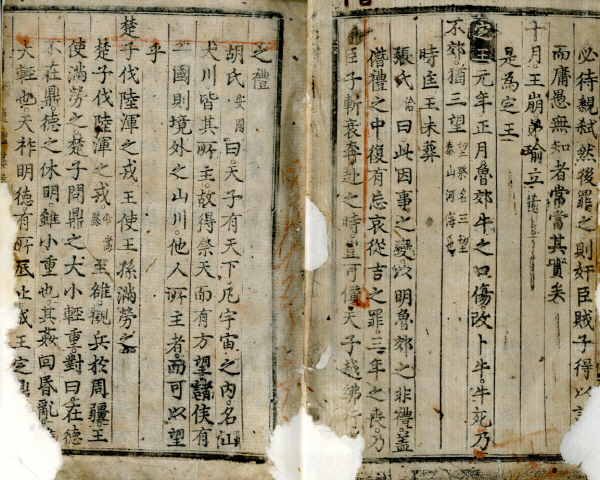 必待親弑然後罪之則奸臣賊子得以
而庸愚無知者常當其實矣
十月王崩弟瑜立
是為定王
定王元年正月魯郊牛之口傷改卜牛牛死乃
不郊猶三望望祭名三望泰山河海也
時匡王未葬
張氏洽曰此因事之變以明魯郊之非禮蓋
僣禮之中復有忘哀從吉之罪三年之喪乃
臣子斬衰奔赴之時豈可僣天子越紼行
之禮
胡氏安國曰天子有天下凡宇宙之內名山
大川皆其所主故得祭天而有方望諸侯有
一國則境外之山川他人所主者而可以望
乎
楚子伐陸渾之戎王使王孫滿勞之
楚子伐陸渾之戎至雒觀兵於周疆王
使滿勞之楚子問鼎之大小輕重對曰在德
不在鼎德之休明雖小重也其姦回昏亂
大輕也天祚明德有所底止成王定鼎